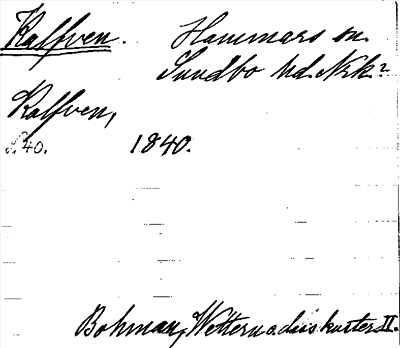 Kalfven. Hammars sn.
Sundbo hd. Nrk?
Kalfven,
s. 40. 1840.
Bohman, Wettern o. dess kuster II.